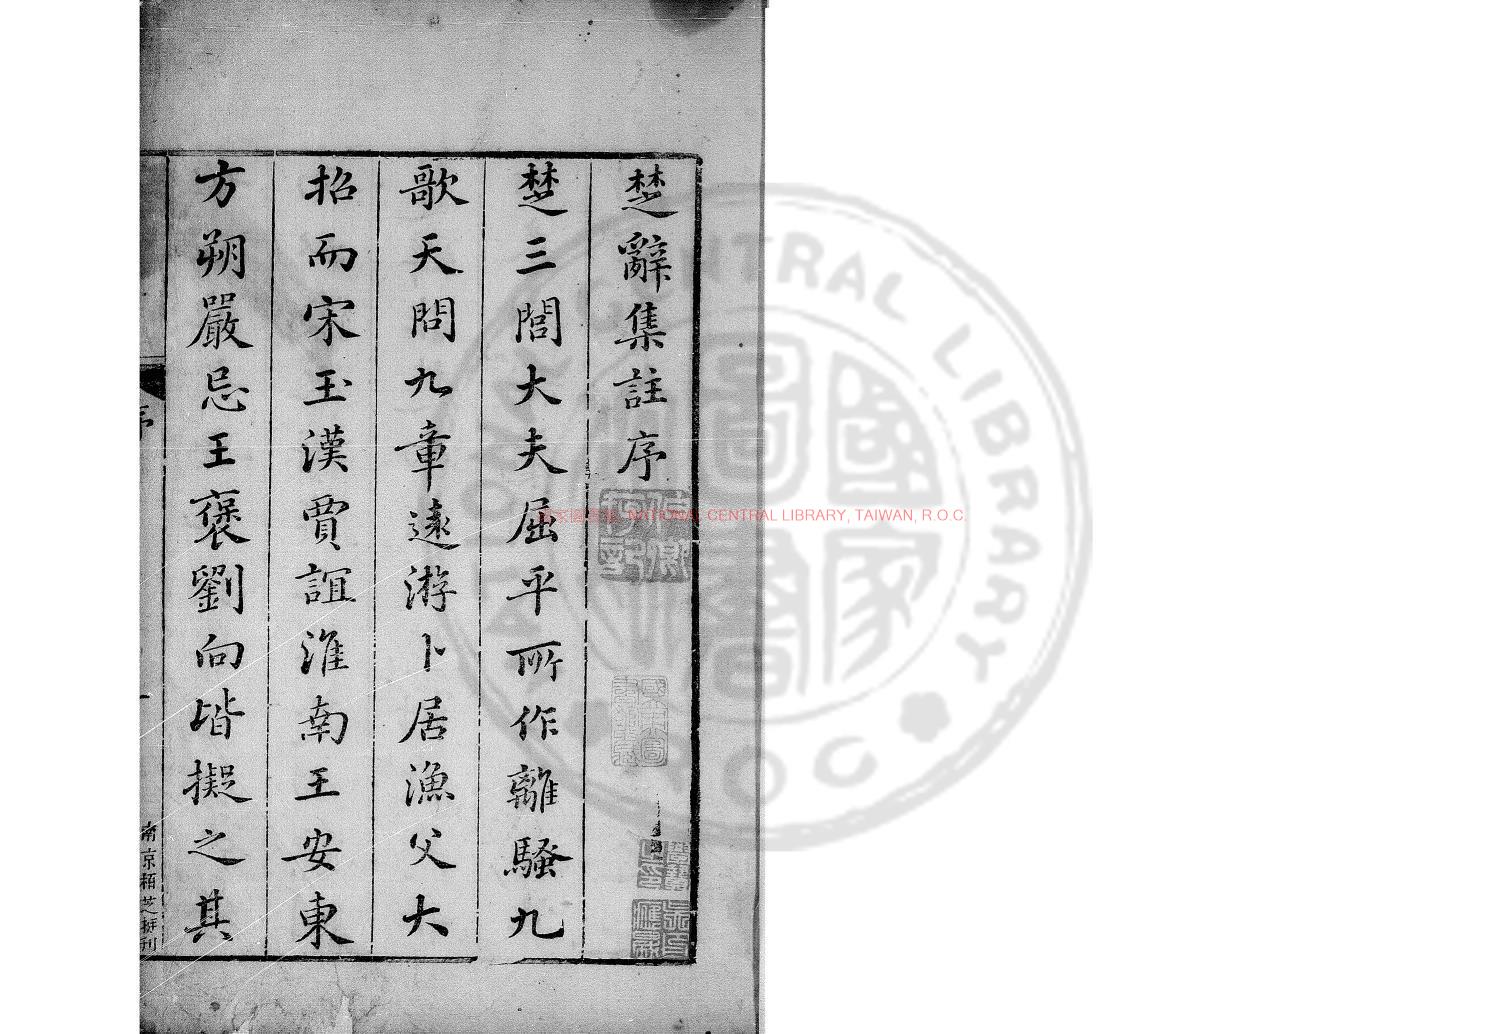 楚辭集註序
楚三閭大夫屈平所作離騷九
歌天問九章遠游卜居漁父大
招而宋玉漢賈誼淮南王安東
方朔嚴忌王褒劉向皆擬之其
序
一
南京栢芝挺刊
國家圖書館 NATIONAL CENTRAL LIBRARY, TAIWAN, R.O.C.
NATIONAL CENTRAL LIBRARY
R O C
國家圖書